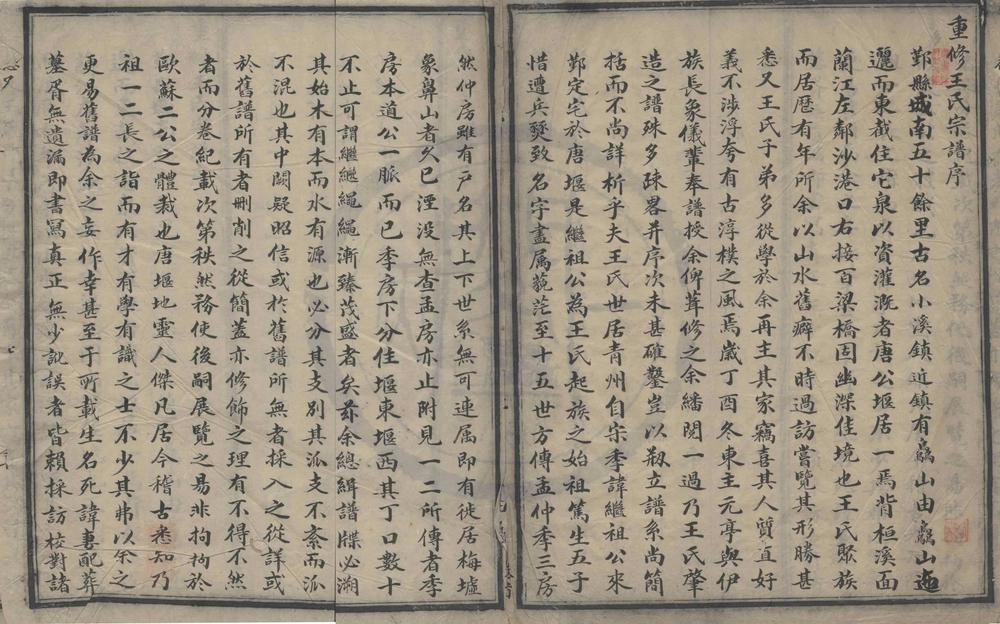 重修王氏宗譜序
鄞縣城南五十餘里古名小溪鎮近鎮有山由山迤
邐而東截住它泉以資灌溉者唐公堰居一焉背桓溪面
蘭江左鄰沙港口右接百梁橋固幽深佳境也王氏聚族
而居歷有年所余以山水舊癖不時過訪嘗覽其形勝甚
悉又王氏子弟多從學於余再主其家竊喜其人質直好
義不涉浮夸有古淳樸之風焉歲丁酉冬東主元亭與伊
族長象儀輩奉譜授余俾葺修之余繙閱一過乃王氏肇
造之譜殊多疎畧并序次未甚確鑿豈以剏立譜系尚簡
括而不尚詳析乎夫王氏世居青州自宋季諱繼祖公來
鄞定宅於唐堰是繼祖公為王氏起族之始祖篤生五子
惜遭兵燹致名字盡属茫至十五世方傳孟仲季三房
然仲房雖有戸名其上下世系無可連属即有徙居梅墟
象鼻山者久已湮没無查孟房亦止附見一二所傳者季
房本道公一脈而已季房下分住堰東堰西其丁口數十
不止可謂繼繼繩繩漸臻茂盛者矣茲余總緝譜牒必溯
其始木有本而水有源也必分其支别其派支不紊而派
不混也其中闕疑昭信或於舊譜所無者採入之從詳或
於舊譜所有者刪削之從簡蓋亦修飾之理有不得不然
者而分卷紀載次第秩然務使後嗣展覽之易非拘拘於
歐蘇二公之體裁也唐堰地靈人傑凡居今稽古悉知乃
祖一二長之詣而有才有學有識之士不少其弗以余之
更易舊譜為余之妄作幸甚至于所載生名死諱妻配葬
墓胥無遺漏即書寫真正無少訛誤者皆賴採訪校對諸